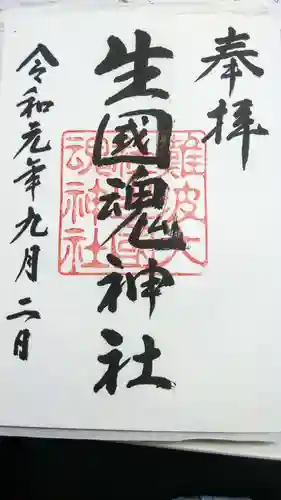 奉拝
生國魂神社
令和元年九月二日
難波大
魂神社